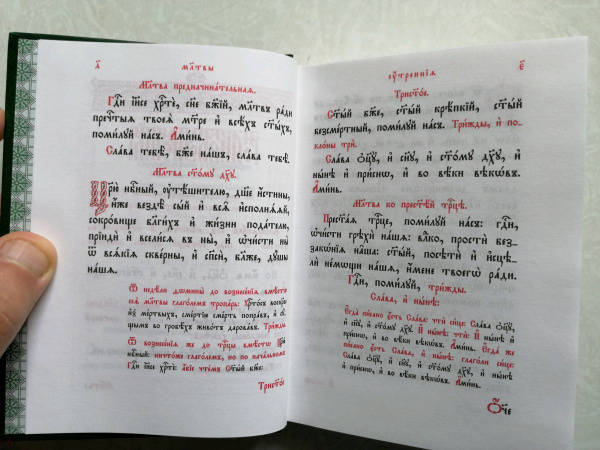 д҃ мл҃твы
Мл҃тва предначинательная.
Гдⷭ҇и і҆и҃се хрⷭ҇тѐ, сн҃е бж҃їй, мл҃твъ ради
пречⷭ҇тыѧ твоеѧ̀ мт҃ре и҆ всѣ́хъ ст҃ы́хъ,
поми́лꙋй на́съ. А҆ми́нь.
Сла́ва тебѣ̀, бж҃е на́шъ, сла́ва тебѣ̀.
Мл҃тва ст҃о́мꙋ дх҃ꙋ.
Цр҃ю̀ нбⷭ҇ный, ᲂу҆тѣ́шителю, дш҃е и҆́стины,
и҆́же вездѣ̀ сы́й и҆ всѧ̑ и҆сполнѧ́ѧй,
сокро́вище бл҃ги́хъ и҆ жи́зни пода́телю,
прїидѝ и҆ всели́сѧ въ ны̀, и҆ ѡ҆чи́сти ны̀
ѿ всѧ́кїѧ скве́рны, и҆ сп҃сѝ, бл҃же, дꙋ́шы
на́шѧ.
Ѿ недѣ́ли
до вознесе́нїѧ вмѣ́стѡ
сеѧ̀ мл҃твы глаго́лемъ тропа́рь: Хрⷭ҇то́съ воскр҃се
и҆з̾ ме́ртвыхъ, сме́ртїю сме́рть попра́въ, и҆ сꙋ́-
щымъ во гробѣ́хъ живо́тъ дарова́въ. Три́жды
Ѿ вознесе́нїѧ же до трⷪ҇цы вмѣ́стѡ Цр҃ю̀
нбⷭ҇ный: ничто́же глаго́лемъ, но по нача́льномъ
Гдⷭ҇и і҆и҃се хрⷭ҇тѐ: а҆́бїе чте́мъ Ст҃ы́й бж҃е:
Трист҃о́е
ᲂу҆́трєннїѧ є҃
Трист҃о́е.
Ст҃ы́й бж҃е, ст҃ы́й крѣ́пкїй, ст҃ы́й
безсме́ртный, поми́лꙋй на́съ. Три́жды, и҆ по-
кло́ны трѝ.
Сла́ва ѻ҆ц҃ꙋ̀, и҆ сн҃ꙋ, и҆ ст҃о́мꙋ дх҃ꙋ, и҆
ны́нѣ и҆ при́снѡ, и҆ во вѣ́ки вѣкѡ́въ.
А҆ми́нь.
Мл҃тва ко прест҃ѣ́й трⷪ҇цѣ.
Прест҃а́ѧ трⷪ҇це, поми́лꙋй на́съ: гдⷭ҇и,
ѡ҆чи́сти грѣхѝ на́шѧ: влⷣко, простѝ без-
зако́нїѧ на̑ша: ст҃ы́й, посѣтѝ и҆ и҆сцѣ-
лѝ не́мѡщи на́шѧ, и҆́мене твоегѡ̀ ра́ди.
Гдⷭ҇и, поми́лꙋй, три́жды.
Сла́ва, и҆ ны́нѣ:
Е҆гда̀ пи́сано є҆́сть чтѝ си́це: Сла́ва ѻ҆ц҃ꙋ̀,
и҆ сн҃ꙋ, и҆ ст҃о́мꙋ дх҃ꙋ. И҆ ны́нѣ чтѝ: И҆ ны́нѣ и҆
при́снѡ, и҆ во вѣ́ки вѣкѡ́въ. А҆ми́нь. Е҆гда́ же
пи́сано є҆́сть Сла́ва, и҆ ны́нѣ: глаго́ли си́це:
Сла́ва ѻ҆ц҃ꙋ̀, и҆ сн҃ꙋ, и҆ ст҃о́мꙋ дх҃ꙋ, и҆ ны́нѣ и҆
при́снѡ, и҆ во вѣ́ки вѣкѡ́въ. А҆ми́нь.
Ѻ҆́ч҃е